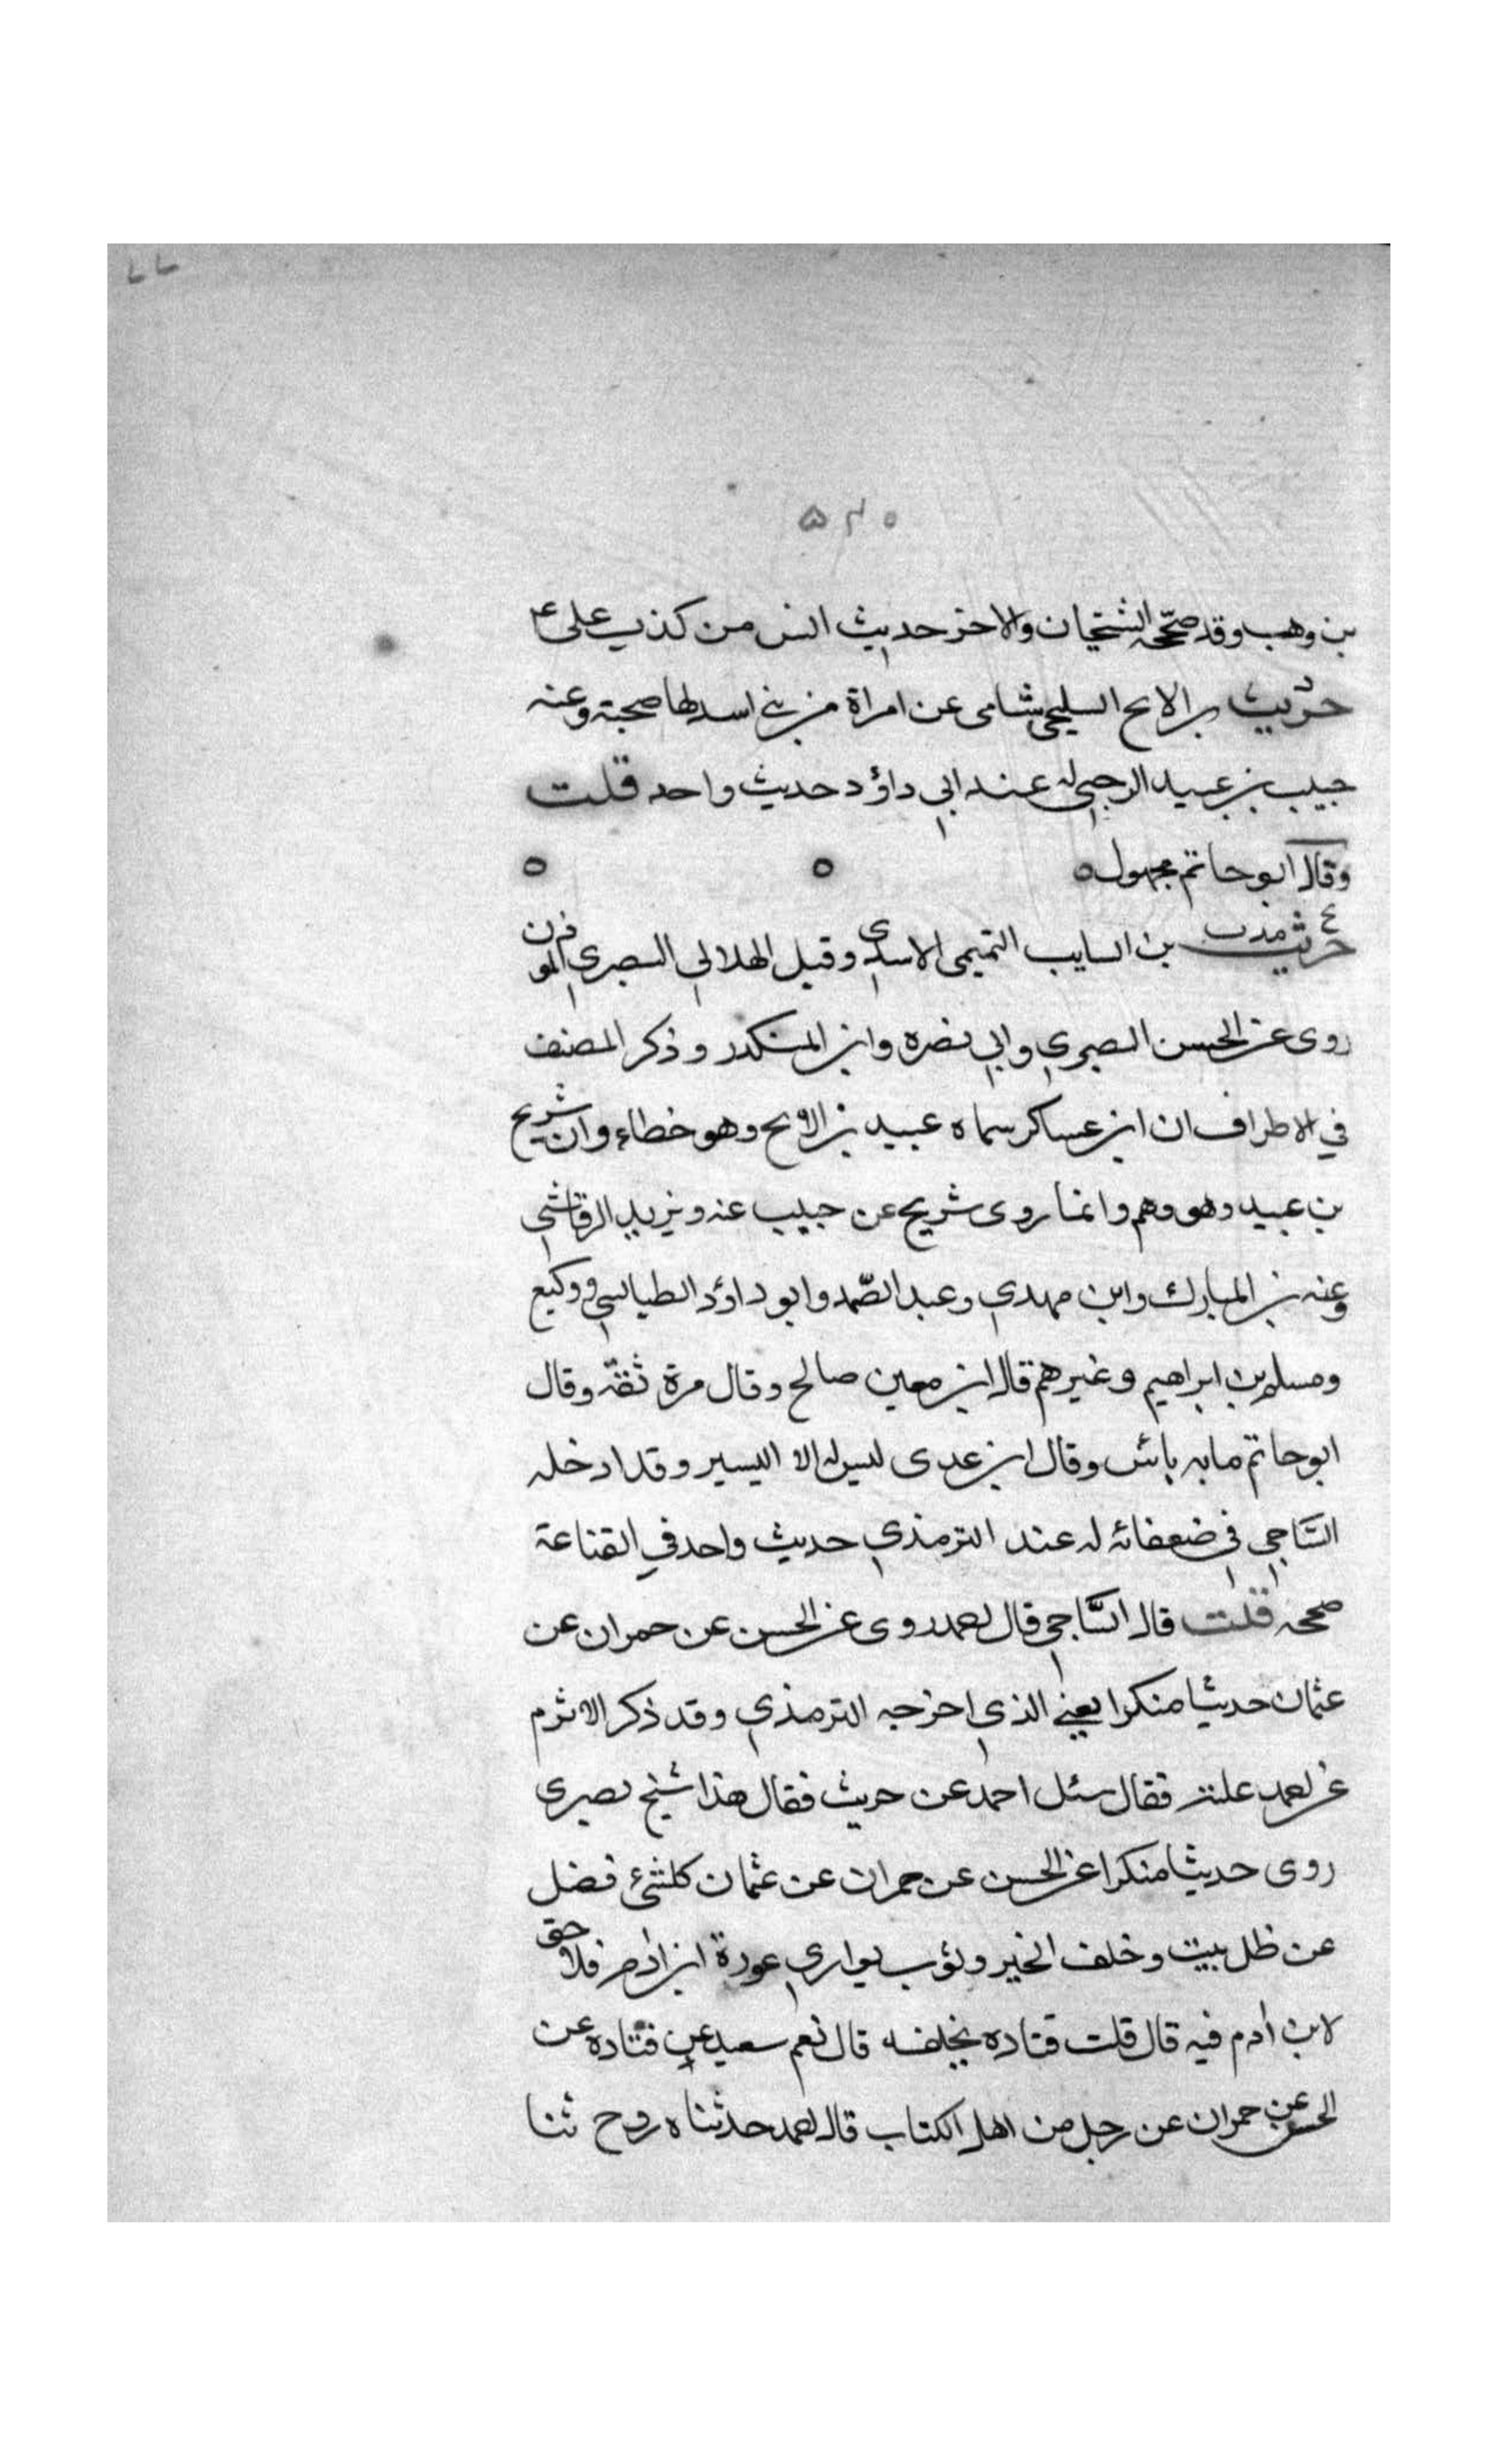 ۵۴۰
بن وهب وقد صحّحه الشيخان والاخر حديث انس من كذب علي ع
د حريث بن الابح السليحي شامي عن امراة من بني اسد لها صحبة وعنه
حبيب بن عبيد الرحبي له عند ابي داؤد حديث واحد قلت
وقال ابو حاتم مجهول ه ه ه
حريث بن السايب التميمي الاسدي وقيل الهلالي البصري المؤذن
روى عن الحسن البصري وابي نضره وابن المنكدر وذكر المصنف
في الاطراف ان ابن عساكر سماه عبيد بن الابح وهو خطاء وان شريح
بن عبيد وهو وهم وانما روى شريح عن حبيب عنه ويزيد الرقاشي
وعنه بن المبارك وابن مهدي وعبد الصّمد وابو داؤد الطيالسي ووكيع
ومسلم بن ابراهيم وغيرهم قال ابن معين صالح وقال مرة ثقة وقال
ابو حاتم ما به بائس وقال ابن عدى ليس له الا اليسير وقد ادخله
السّاجي في ضعفائه له عند الترمذي حديث واحد في القناعة
صححه قلت قال السّاجي قال احمد روى عن الحسن عن حمران عن
عثمان حديثا منكرا يعني الذي اخرجه الترمذي وقد ذكر الاثرم
عن احمد علته فقال سئل احمد عن حريث فقال هذا شيخ بصرى
روى حديثا منكرا عن الحسن عن حمران عن عثمان كل شئ فضل
عن ظل بيت وخلف الخبر وثوب يواري عورة ابن ادم فلا حق
لابن أدم فيه قال قلت قتاده يخلفه قال نعم سعيد عن قتاده عن
الحسن عن حمران عن رجل من اهل الكتاب قال احمد حدثناه روح ثنا